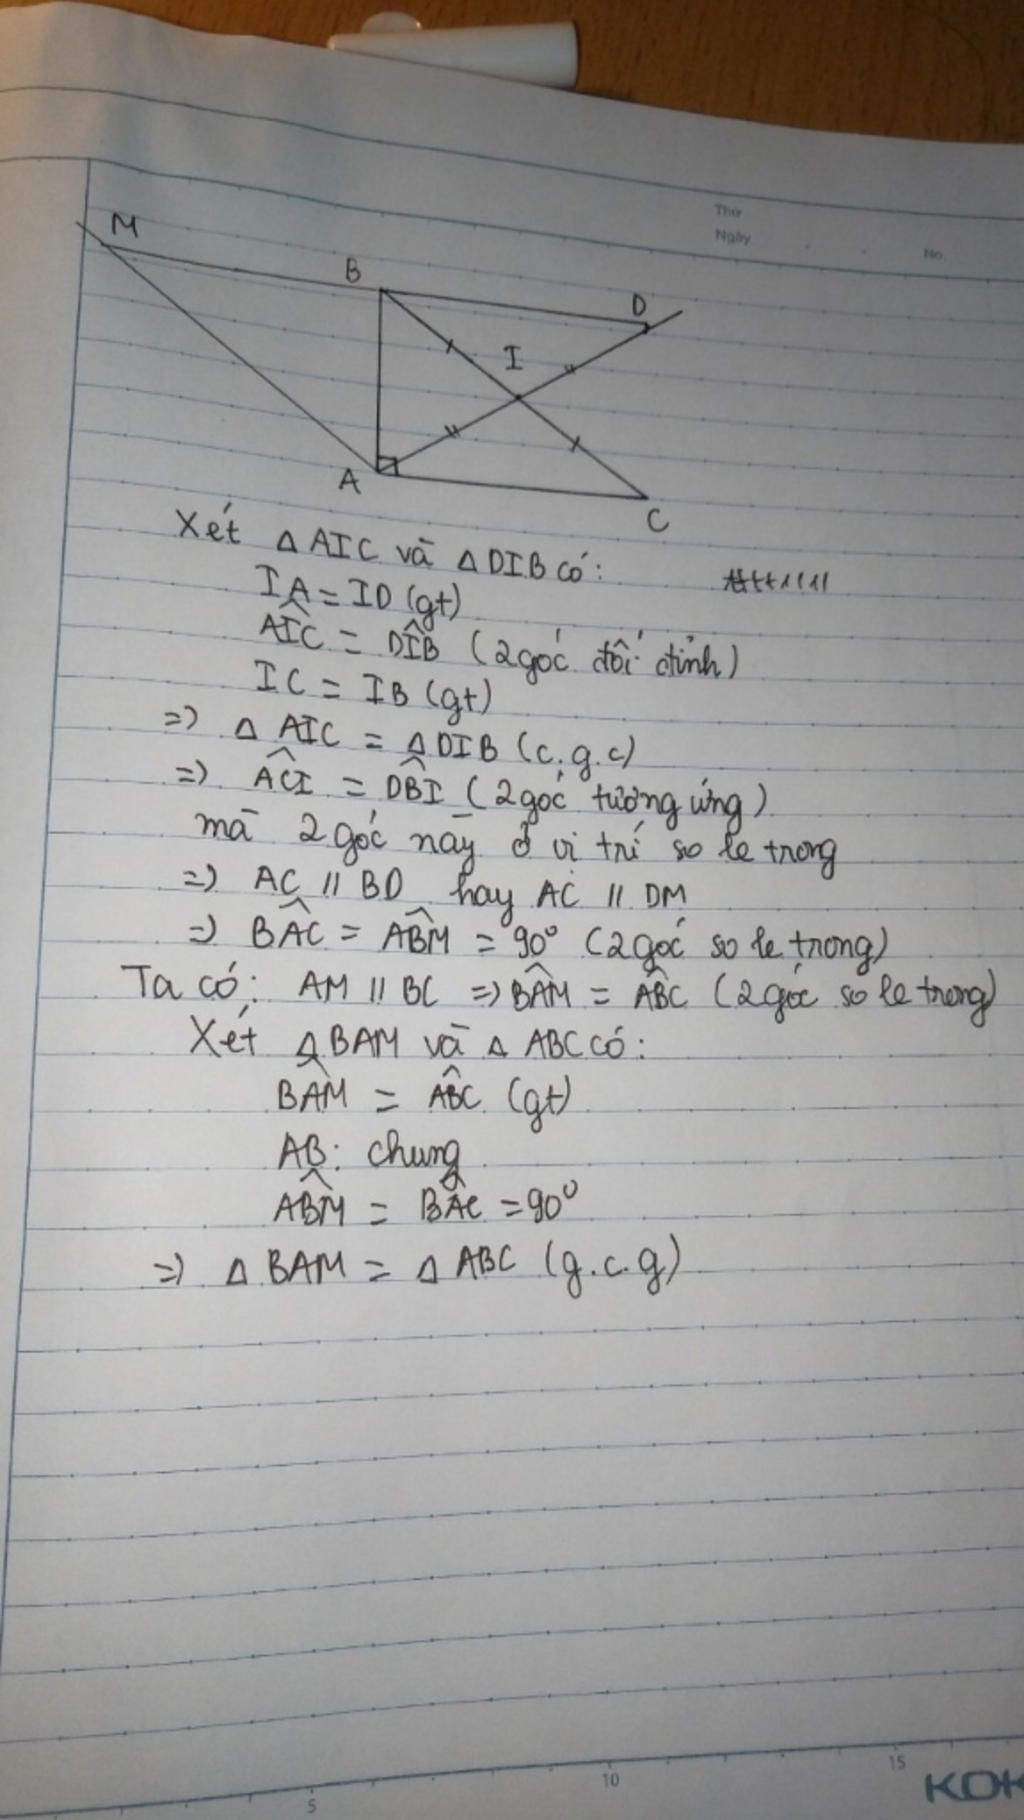 Thứ
Ngày
No.
M
B
D
I
A
C
Xét Δ AIC và Δ DIB có:
IA = ID (gt)
AÎC = DÎB (2 góc đối đỉnh)
IC = IB (gt)
=> Δ AIC = Δ DIB (c.g.c)
=> AĈI = DB̂I (2 góc tương ứng)
mà 2 góc này ở vị trí so le trong
=> AC // BD hay AC // DM
=> BÂC = AB̂M = 90° (2 góc so le trong)
Ta có: AM // BC => BÂM = AB̂C (2 góc so le trong)
Xét Δ BAM và Δ ABC có:
BÂM = AB̂C (gt)
AB: chung
AB̂M = BÂC = 90°
=> Δ BAM = Δ ABC (g.c.g)
5 10 15
KOK